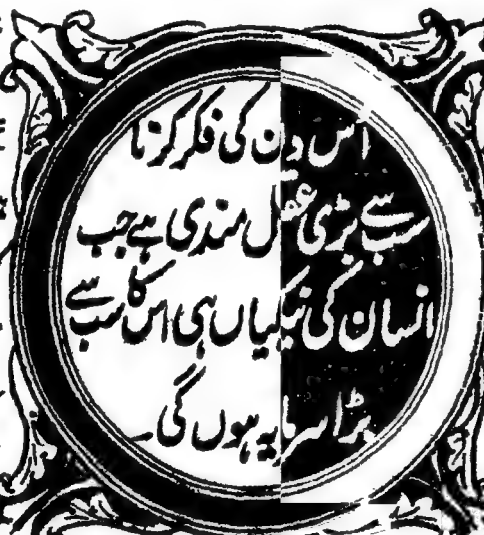 اس دن کی فکر کرنا
سب سے بڑی عقل مندی ہے جب
انسان کی نیکیاں ہی اس کا سب سے
بڑا سرمایہ ہوں گی۔